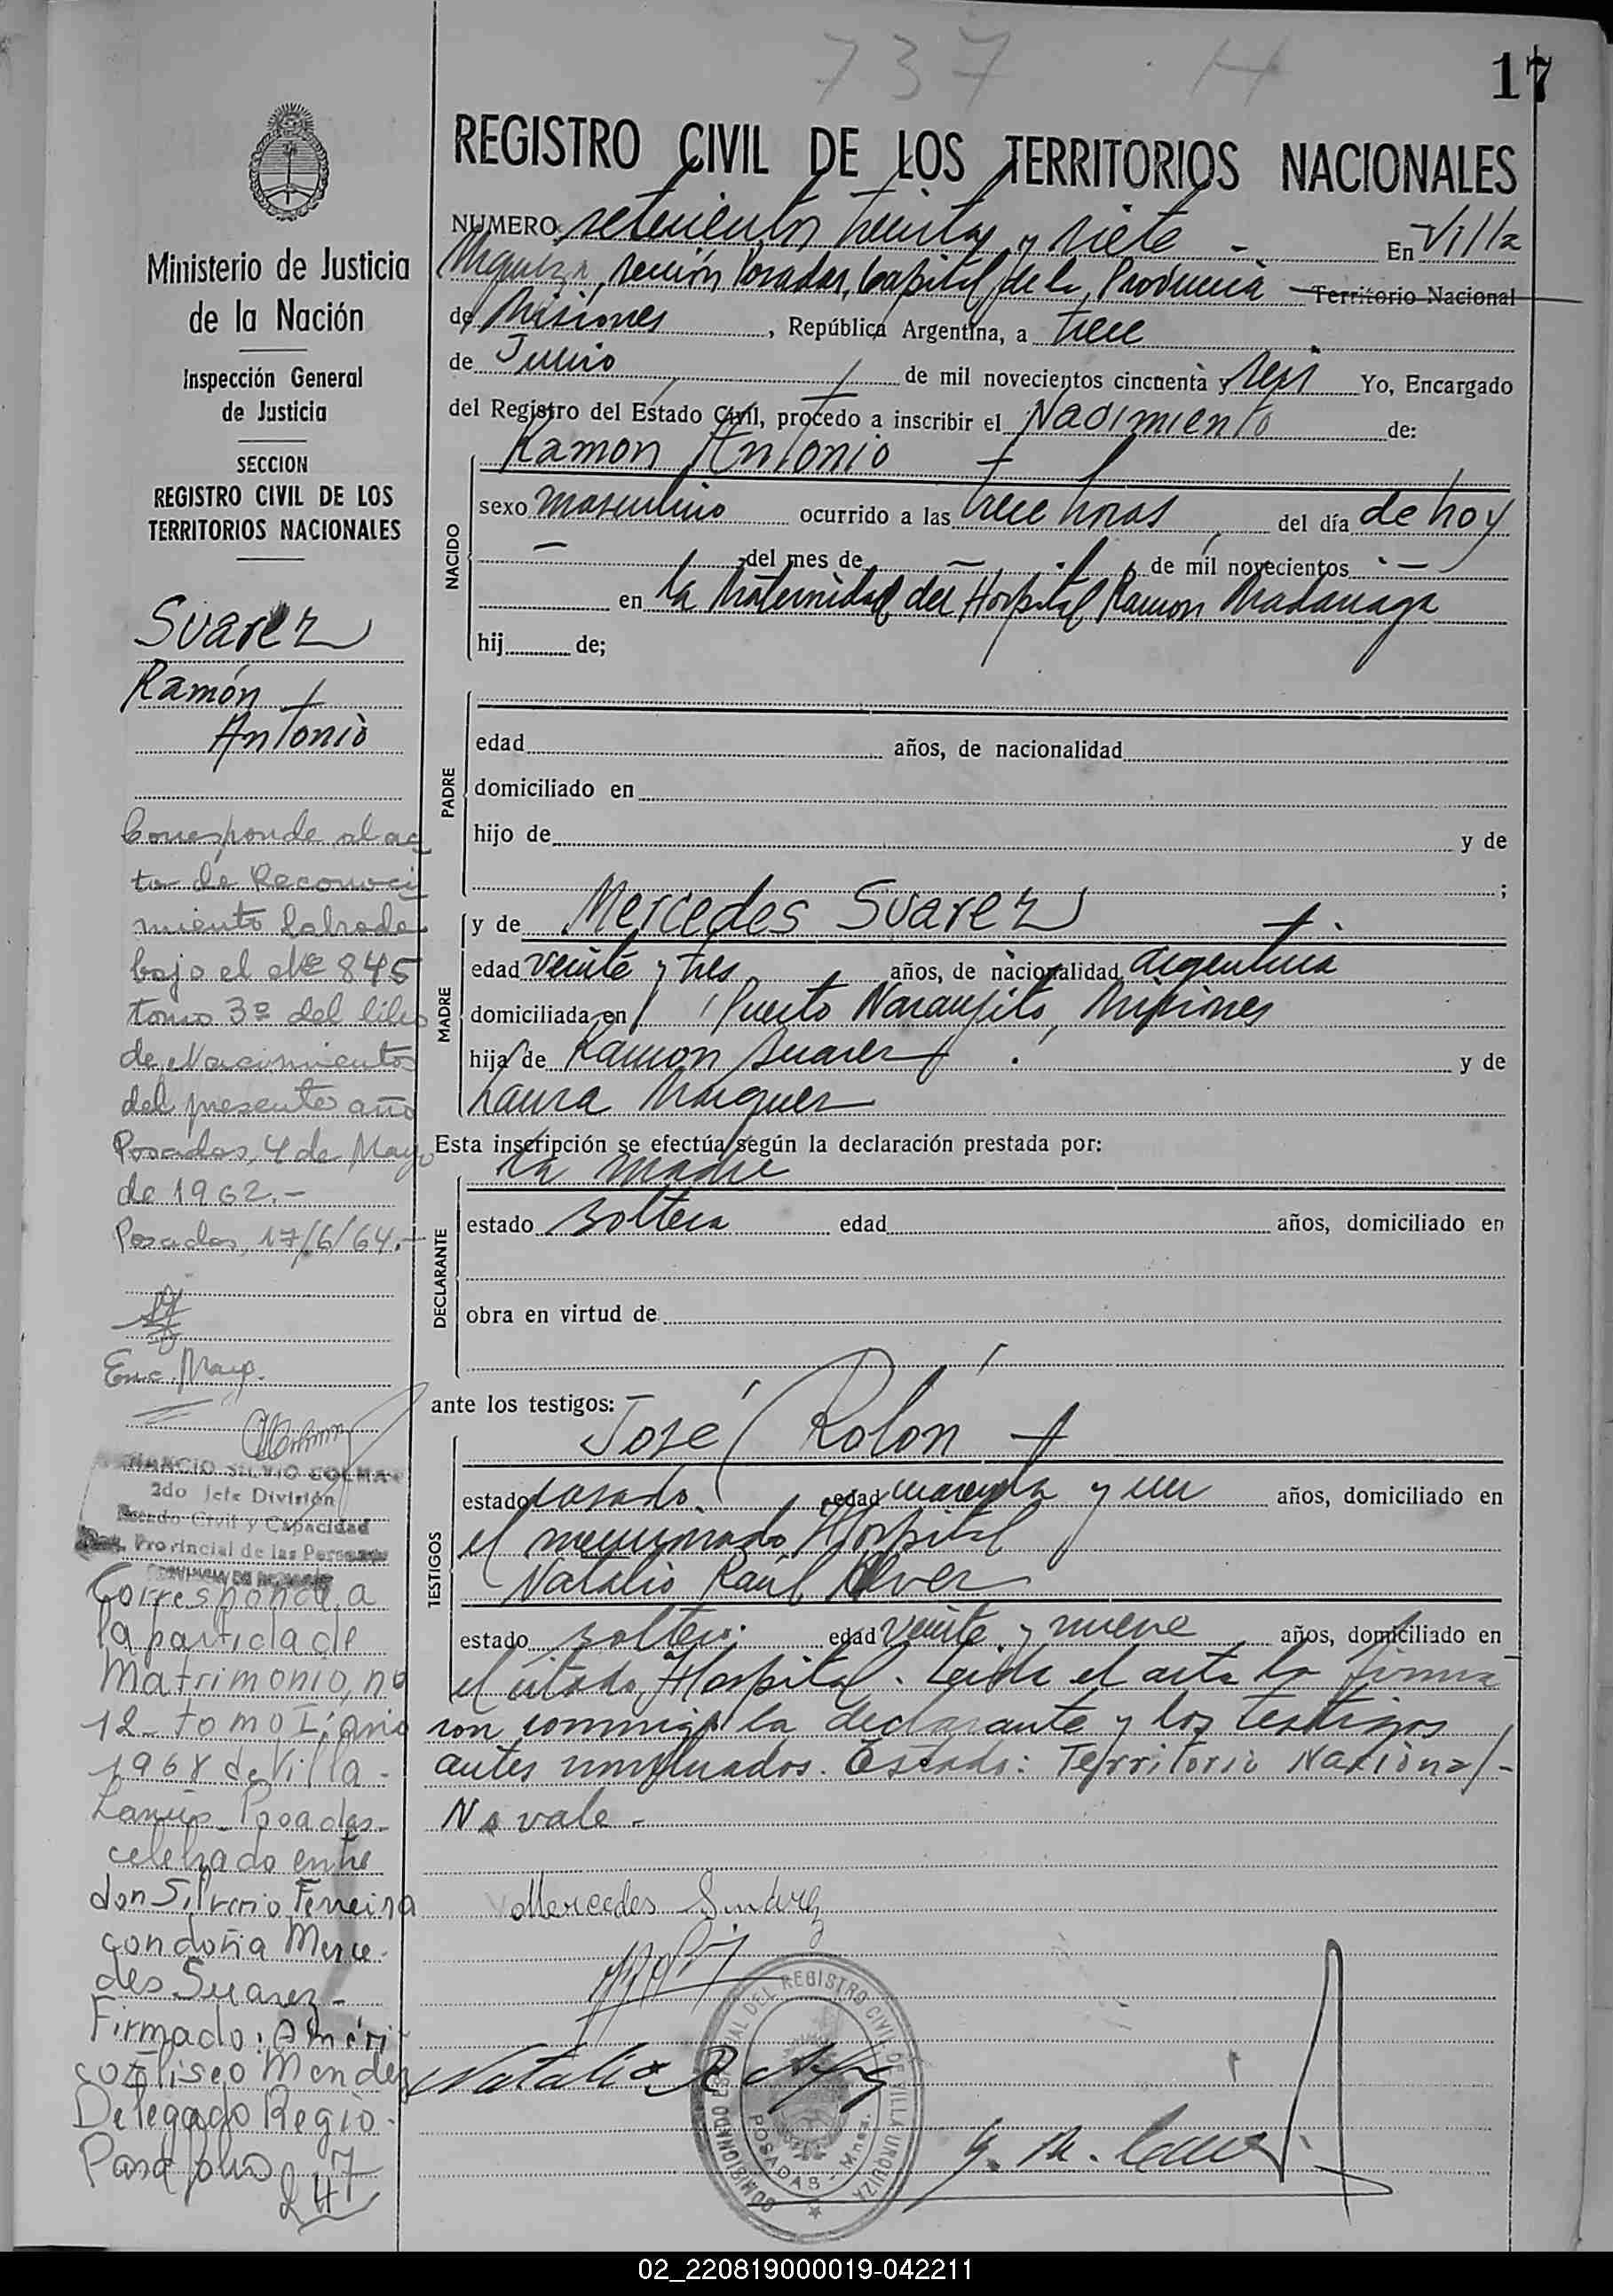 737 H
17
REGISTRO CIVIL DE LOS TERRITORIOS NACIONALES
NUMERO setecientos treinta y siete - En Villa
Urquiza, sección Posadas, Capital de la Provincia Territorio Nacional
de Misiones, República Argentina, a trece
de Junio de mil novecientos cincuenta y seis Yo, Encargado
del Registro del Estado Civil, procedo a inscribir el Nacimiento de:
NACIDO
Ramon Antonio
sexo masculino ocurrido a las trece horas del día de hoy
— del mes de — de mil novecientos —
en la Maternidad del Hospital Ramon Madariaga
hij de;
PADRE
edad años, de nacionalidad
domiciliado en
hijo de y de
;
MADRE
y de Mercedes Suarez
edad veinte y tres años, de nacionalidad argentina
domiciliada en Puerto Naranjito, Misiones
hija de Ramon Suarez y de
Laura Marquez
Esta inscripción se efectúa según la declaración prestada por:
DECLARANTE
la madre
estado soltera edad años, domiciliado en
obra en virtud de
ante los testigos:
TESTIGOS
José Rolón
estado casado. edad cuarenta y un años, domiciliado en
el mencionado Hospital
Natalio Raúl Alvez
estado soltero. edad veinte y nueve años, domiciliado en
el citado Hospital. Leida el acta la firma
ron conmigo la declarante y los testigos
antes nombrados. Testado: Territorio Nacional-
No vale-
Mercedes Suarez
Natalio R
COMISIONADO ESPECIAL DEL REGISTRO CIVIL DE VILLA URQUIZA
POSADAS - Mnes.
Ministerio de Justicia
de la Nación
Inspección General
de Justicia
SECCION
REGISTRO CIVIL DE LOS
TERRITORIOS NACIONALES
Suarez
Ramón
Antonio
Corresponde al ac
ta de Reconoci
miento labrada
bajo el Nº 845
tomo 3º del libro
de Nacimientos
del presente año
Posadas, 4 de Mayo
de 1962.-
Posadas, 17/6/64.-
Enc. Marg.
SILVIO
2do Jefe División
Estado Civil y Capacidad
Provincial de las Personas
Corresponde a
la partida de
Matrimonio, no
12 - tomo I, año
1968 de Villa -
Lanús - Posadas-
celebrado entre
don Silverio Ferreira
con doña Merce-
des Suarez -
Firmado: Améri
co Eliseo Mendez
Delegado Regio-
Pasa folio
247
02_220819000019-042211